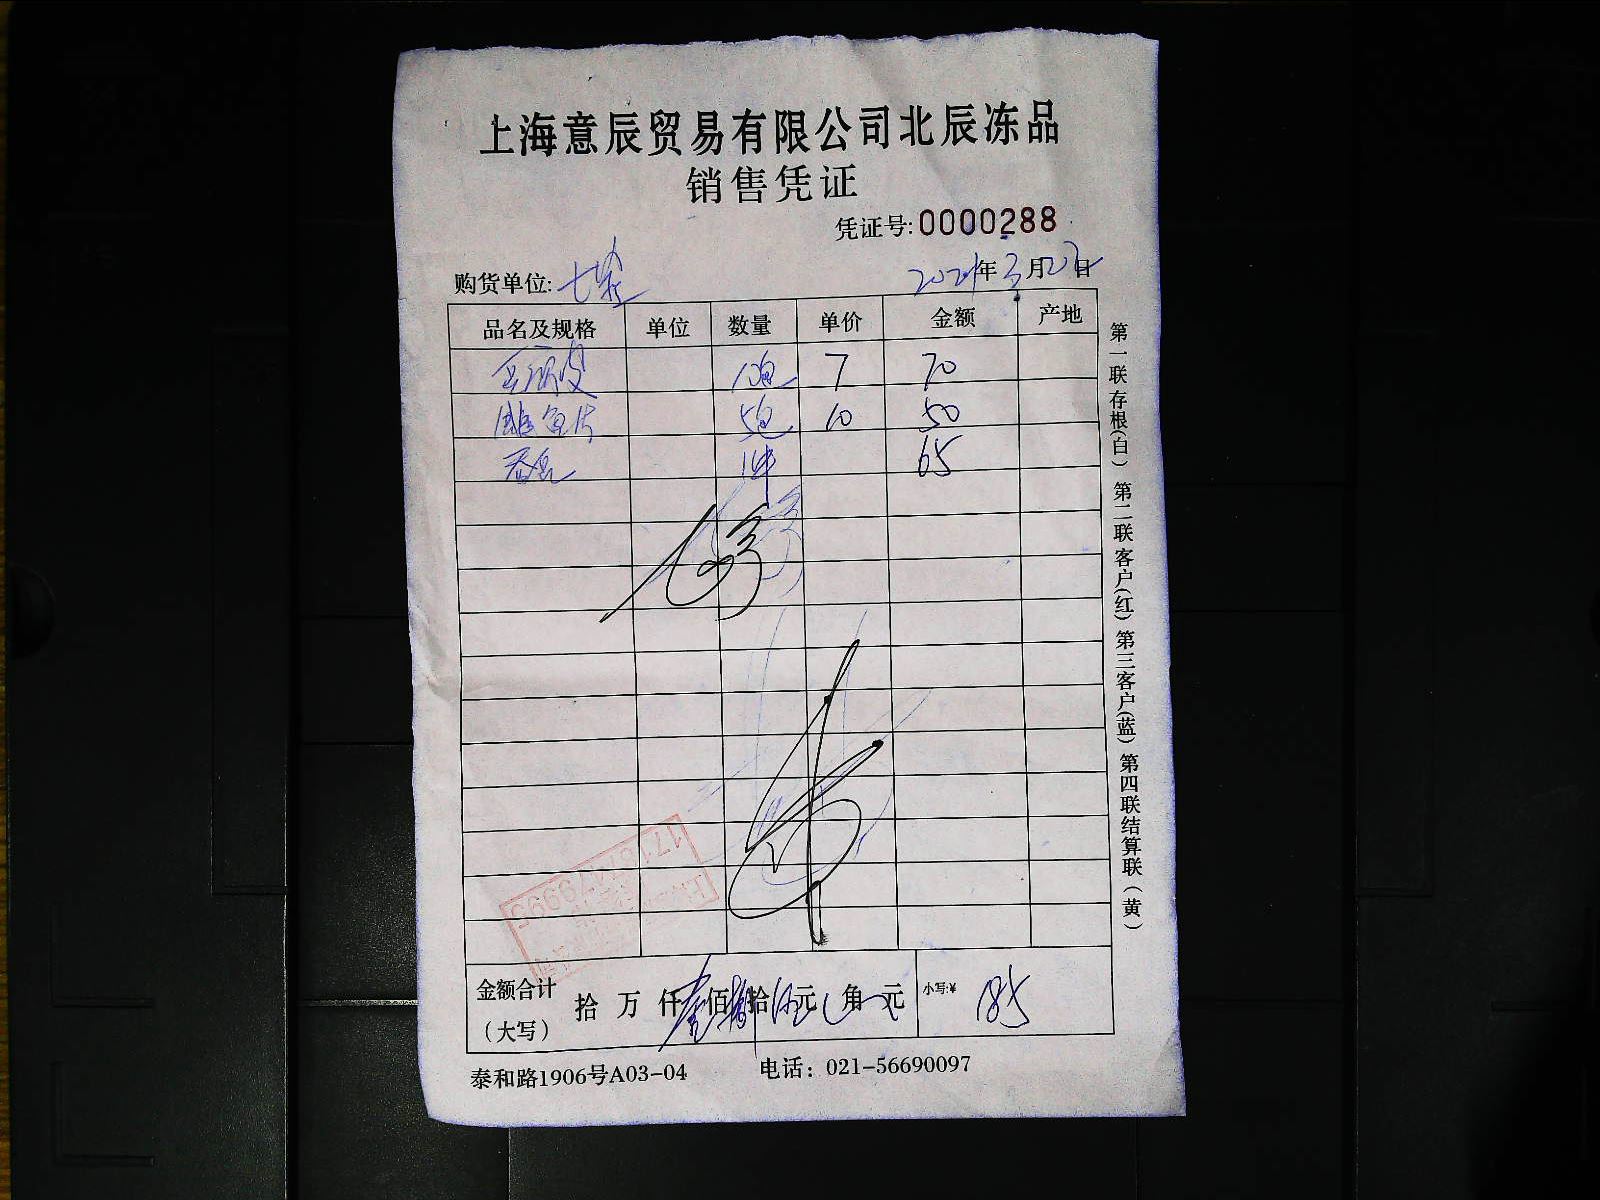 上海意辰贸易有限公司北辰冻品
销售凭证
凭证号:0000288
购货单位:七案
2021年3月27日
品名及规格 单位 数量 单价 金额 产地
10包 7 70
鱼片 5包 10 50
1件 65
金额合计(大写) 拾 万 仟 壹佰捌拾伍元 角 元 小写:¥ 185
泰和路1906号A03-04 电话：021-56690097
第一联存根(白) 第二联客户(红) 第三客户(蓝) 第四联结算联(黄)